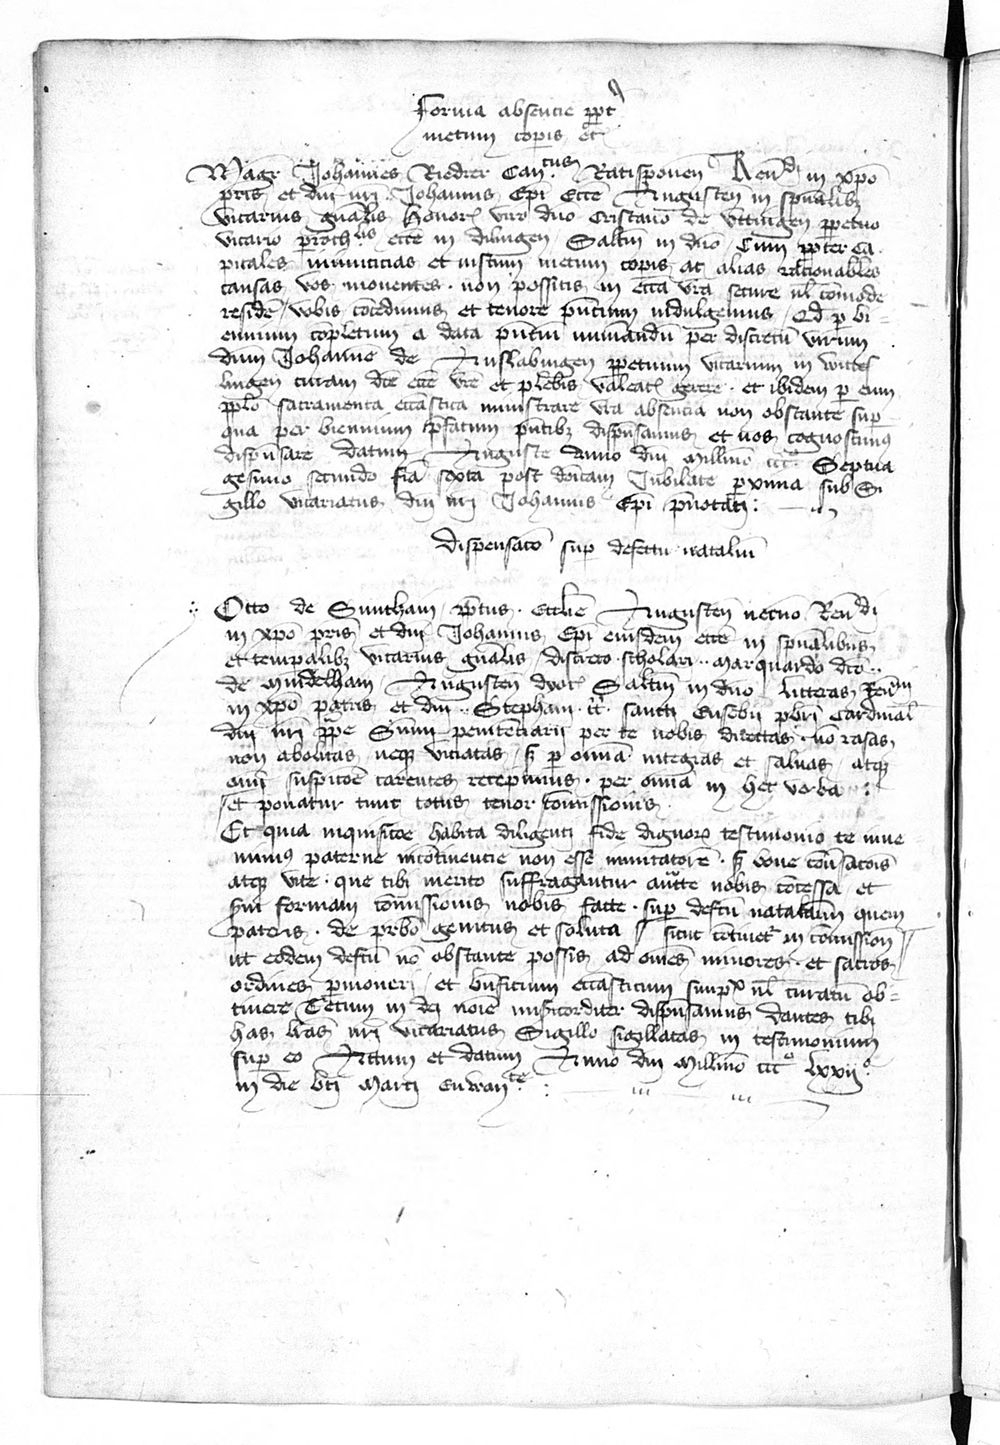 Forma absencie ppt
metum corpis etc
Magr Johannes Riedrer Cantus Ratisponen Reudi in xpo
pris et dni nri Johannis Epi Eccte Augusten in spualibz
vicarius gnalis Honorl viro dno Cristano de Uttingen ppetuo
vicario prochlis eccte in dilingen Saltm in dno Cum ppter ca
pitales inimicicias et iustum metum corpis ac alias racionabiles
causas vos mouentes non possitis in eccta vra secure ul comode
residere vobis concedimus et tenore pncium indulgemus Qd p bi
ennium copletum a data pncium numerandum per discretu virum
dnm Johanne de Auslabingen ppetuum vicarium in wittes
lingen curam dce eccte vre et plebis valeatl gerere et ibidem p eum
pplo sacramenta eccastica ministrare vra absencia non obstante sup
qua per biennium pfatum pntibz dispensamus et uos cognoscimus
dispensare Datum Auguste Anno dni Millmo ccco Septua
gesimo secundo fia sexta post dnicam Jubilate pxima sub Si
gillo vicariatus dni nri Johannis Epi pnotati
Dispensaco sup defectu nataliu
Otto de Suntham pptus Ecclie Augusten necno Reudi
in xpo pris et dni Johannis Epi eiusdem eccte in spualibus
et tempalibz vicarius gnalis discreto scholari Marquardo dco
de Mindelham Augusten dyoc Saltm in dno litteras Reudi
in xpo patris et dni Stephani tt sancti Eusebii pbri Cardinal
dni nri ppe Summi penitenciarii per te nobis directas no rasas
non abolitas neqz viciatas sz p omia integras et saluas atqz
omi suspicoe carentes recepimus per omia in hec verba
et ponatur tunc totus tenor comissionis
Et quia inquisicoe habita diligenti fide dignorz testimonio te inue
nimus paterne incotinencie non esse imitatore sz bone conusacois
atqz vite que tibi merito suffragantur aucte nobis concessa et
iux formam comissionis nobis facte sup defcu natalium quem
pateris de prbo genitus et soluta sicut cotinetur in comission
ut eodem defcu no obstante possis ad omes minores et sacros
ordines pmoueri et bnficium eccasticum simpx ul curatu ob
tinere Tecum in dei noie misicorditer dispensamus Dantes tibi
has lras nri vicariatus Sigillo sigillatas in testimonium
sup eo Actum et datum Anno dni Millmo ccco lxxiio
in die bti Marci Euwante